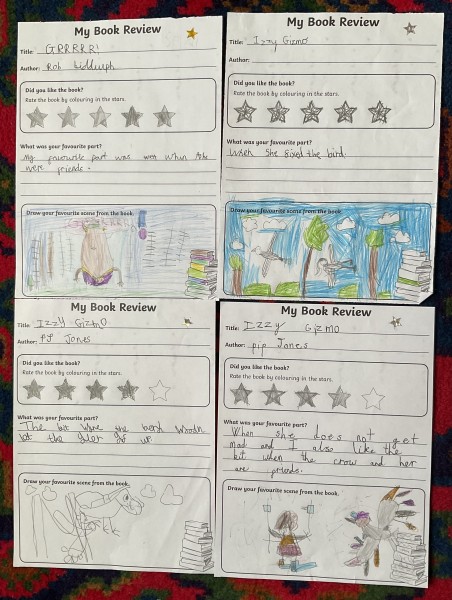 My Book Review
Title: GRRRRR!
Author: Rob Biddulph
Did you like the book?
Rate the book by colouring in the stars.
What was your favourite part?
My favourite part was when
were friends.
Draw your favourite scene from the book.
My Book Review
Title: Izzy Gizmo
Author:
Did you like the book?
Rate the book by colouring in the stars.
What was your favourite part?
When she fixed the bird.
Draw your favourite scene from the book.
My Book Review
Title: Izzy Gizmo
Author: PJ Jones
Did you like the book?
Rate the book by colouring in the stars.
What was your favourite part?
The bit the
the
Draw your favourite scene from the book.
My Book Review
Title: Izzy Gizmo
Author: pip Jones
Did you like the book?
Rate the book by colouring in the stars.
What was your favourite part?
When she does not get
mad and I also like the
bit when the crow and her
are friends.
Draw your favourite scene from the book.